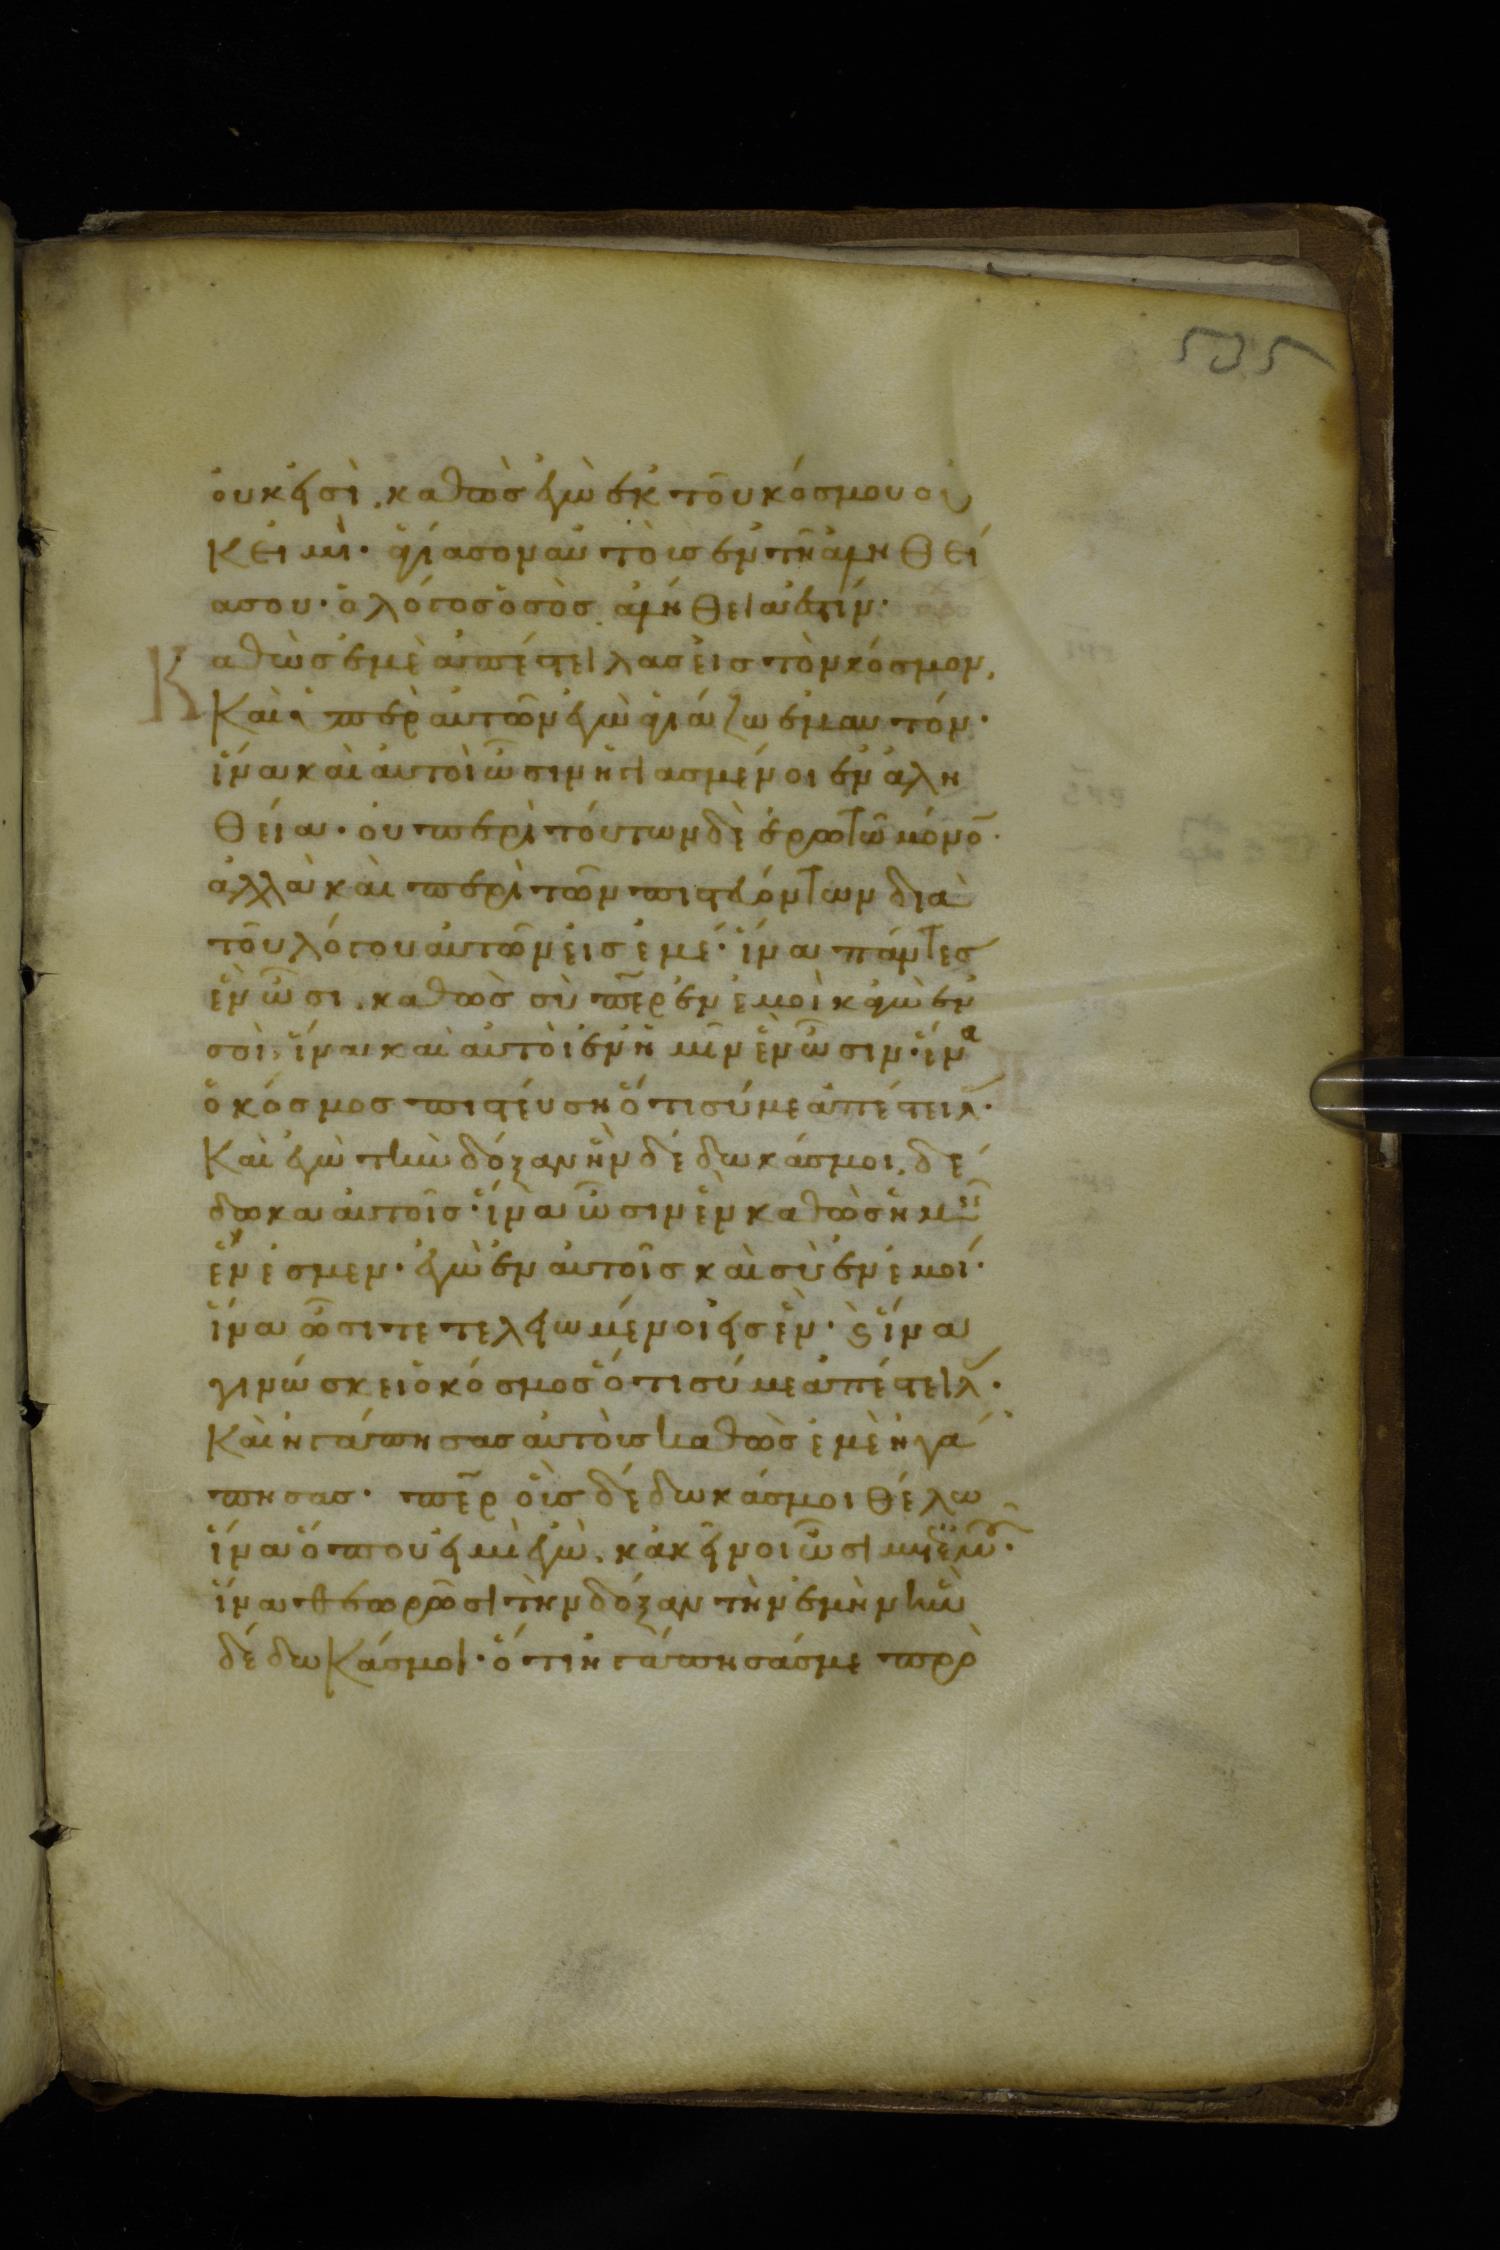 535
ὀυκ εἰσὶ, καθὼσ ἐγὼ ἐκ τοῦ κόσμου οὐ
κ ειμὶ· ἁγίασον αὐτοὺσ ἐν τῆ ἀληθεί
α σου· ὁ λόγοσ ὁ σὸσ ἀλήθειά ἐστίν·
Καθὼσ ἐμὲ ἀπέστειλασ εἰσ τὸν κόσμον,
Καὶ ὑπὲρ αὐτῶν ἐγὼ ἁγιάζω ἐμαυτόν·
ἵνα καὶ αὐτοὶ ὦσιν ἡγιασμένοι ἐν ἀλη
θεία· οὐ περὶ τούτων δὲ ἐρωτῶ μόνο̄·
ἀλλὰ καὶ περὶ τῶν πιστευόντων διὰ
τοῦ λόγου αὐτῶν εἰσ ἐμέ· ἵνα πάντεσ
ἓν ὦσι, καθὼσ σὺ πε̄ρ ἐν ἐμοὶ κἀγὼ ἐν
σοὶ, ἵνα καὶ αὐτοὶ ἐν ἡμῖν ἓν ὦσιν· ἵνα
ὁ κόσμοσ πιστέυση ὅτι σύ με ἀπέστειλ·
Καὶ ἐγὼ τὴν δόξαν ἣν δέδωκάσ μοι, δέ
δωκα αὐτοῖσ· ἵνα ὦσιν ἓν καθὼσ ἡμεῖσ
ἕν ἐσμεν· ἐγὼ ἐν αὐτοῖσ καὶ σὺ ἐν ἐμοί·
ἵνα ὦσι τετελειωμένοι εἰσ ἓν· ϗ ἵνα
γινώσκει ὁ κόσμοσ ὅτι σύ με ἀπέστειλ·
Καὶ ἠγάπησασ αὐτοὺσ καθὼσ ἐμὲ ἠγά
πησασ· πε̄ρ οὓσ δέδωκάσ μοι θέλω
ἵνα ὅπου εἰμὶ ἐγὼ, κἀκεῖνοι ὦσι μετ ἐμοῦ·
ἵνα θεωρῶσι τὴν δόξαν τὴν ἐμὴν ἣν
δέδωκάσ μοι· ὅτι ἠγάπησάσ με πρὸ